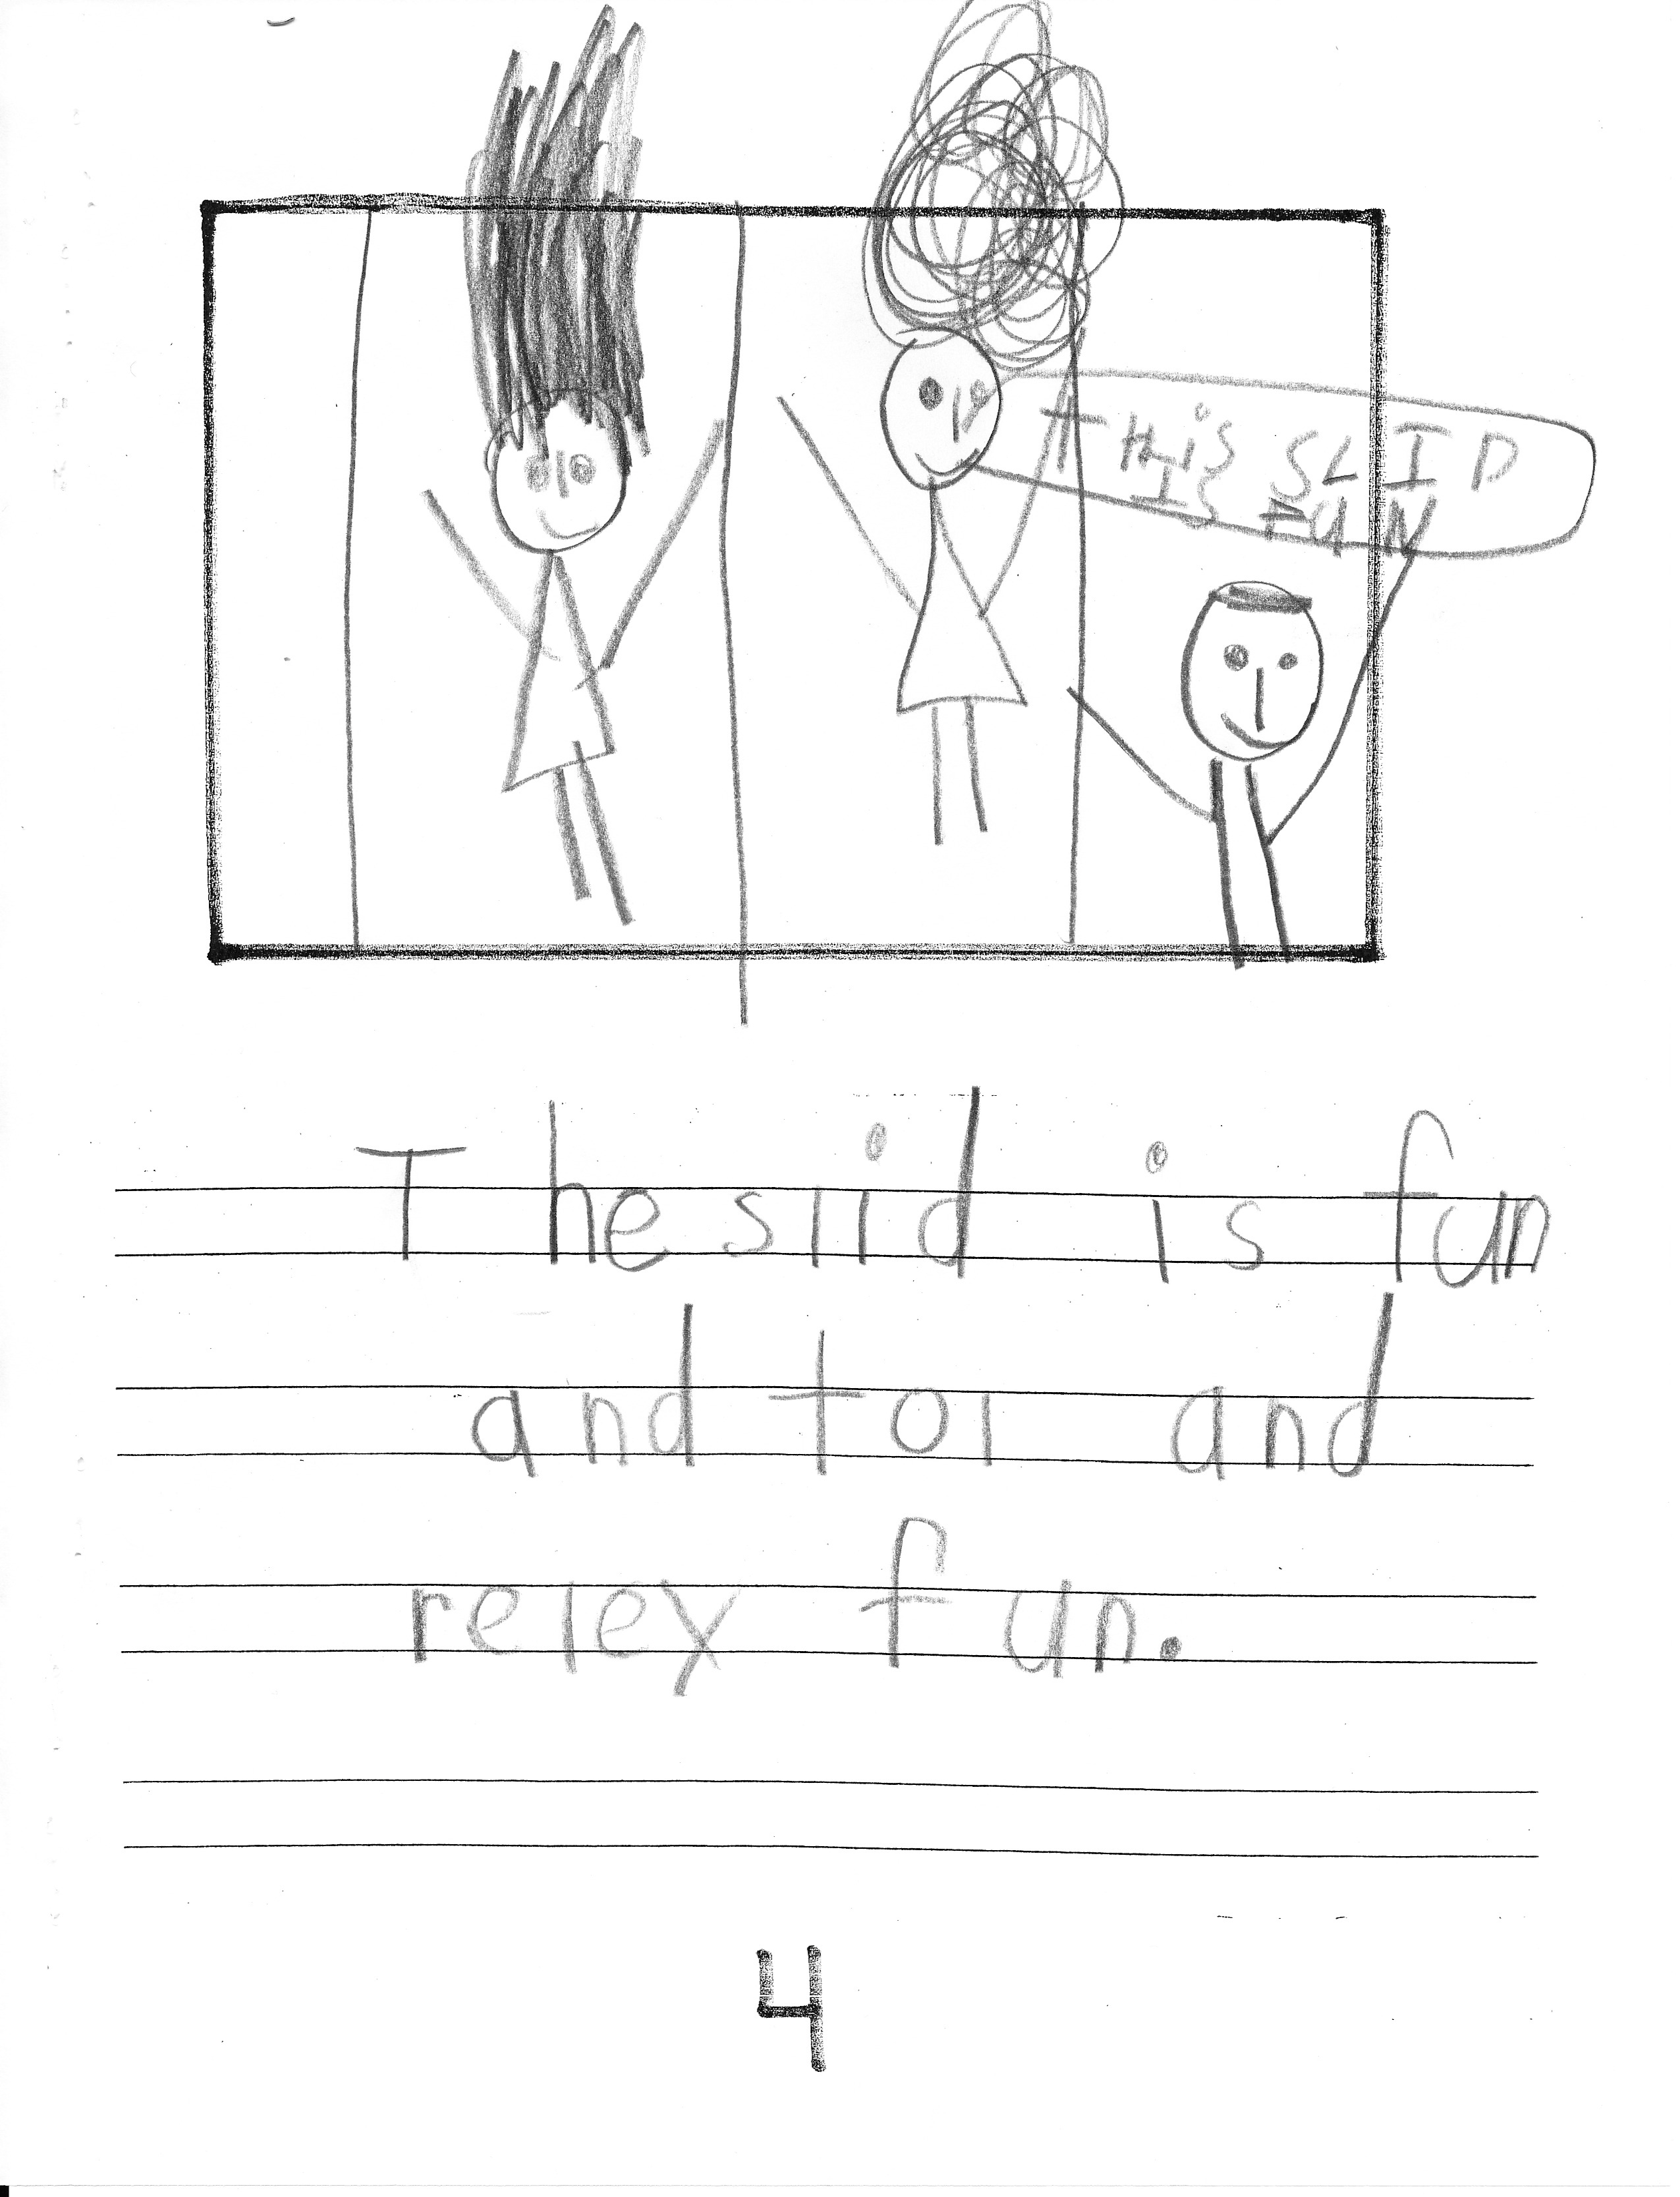 THis SLID
Is FUN
The slid is fun
and tol and
relex fun.
4